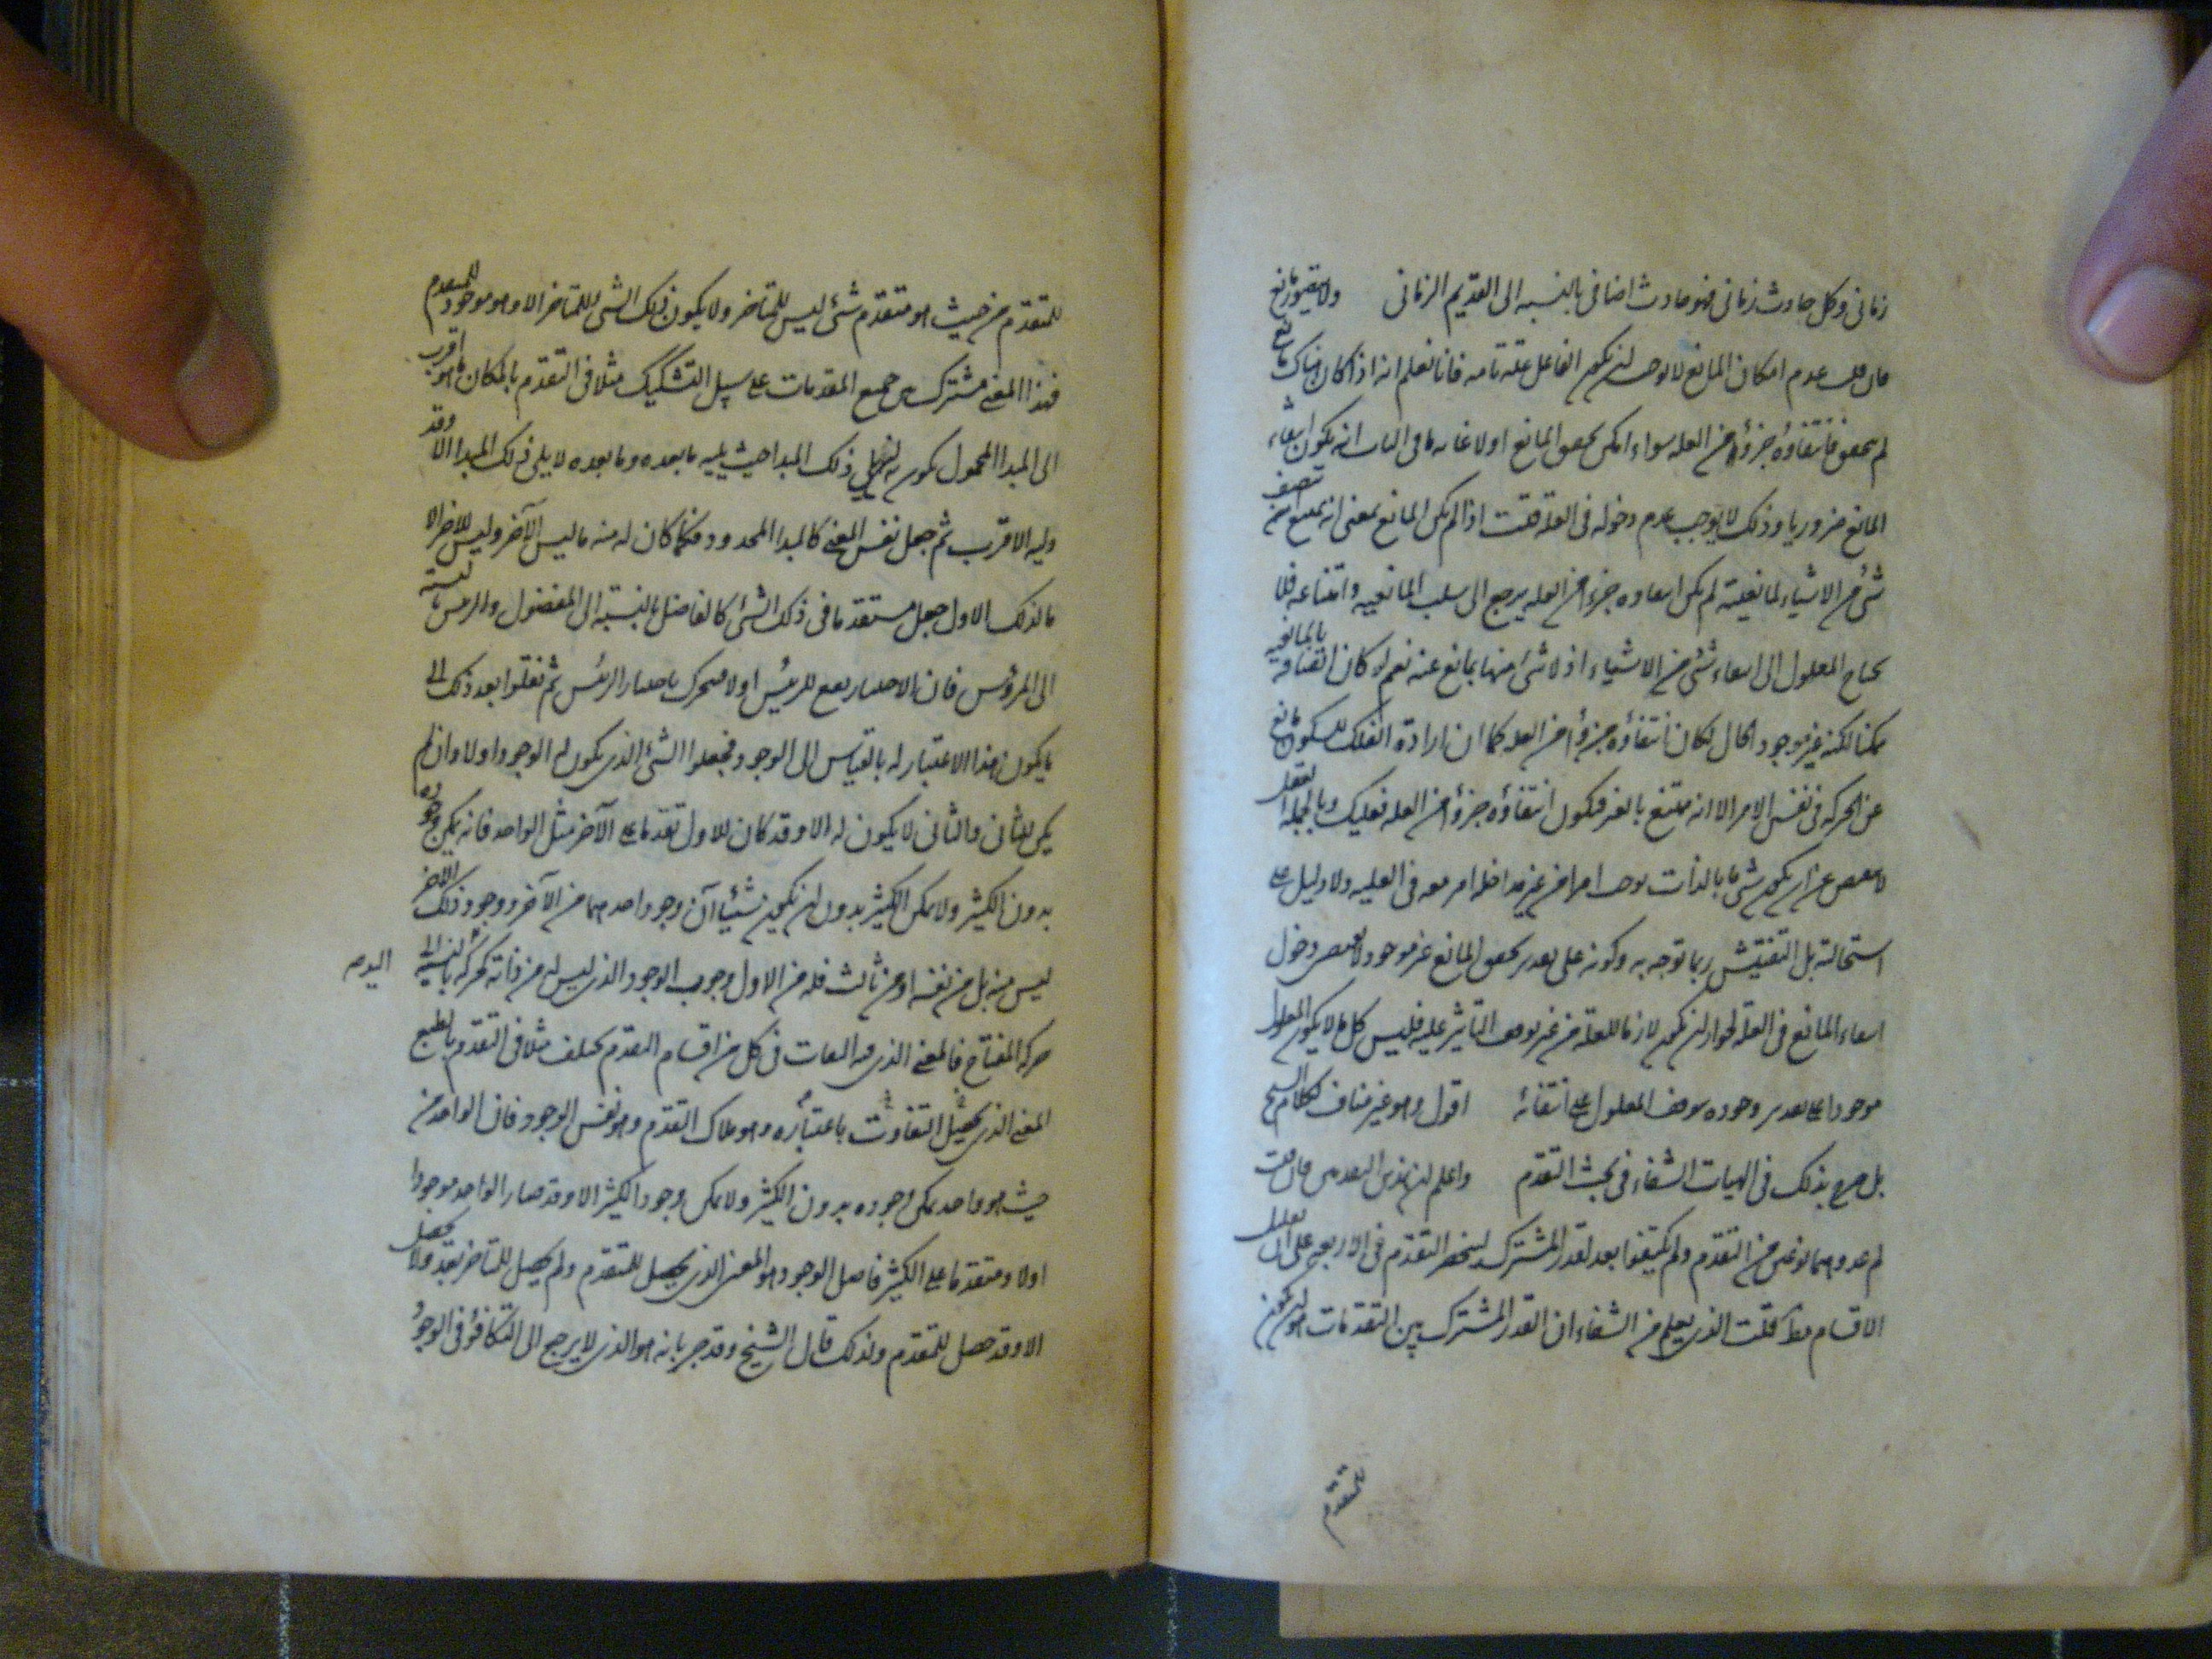 زمانى وكل حادث زمانى فهو حادث اضافى بالنسبه الى القديم الزمانى ولا يتصور مانع
فان قلت عدم امكان المانع لا يوجب ان يكون الفاعل علة تامه فانا نعلم انه اذا كان هناك مانع
لم يتحقق فانتفاؤه جزؤ من العله سواء امكن تحقق المانع اولا غايه ما فى الباب انه يكون انتفاء
المانع ضروريا وذلك لا يوجب عدم دخوله فى العلة قلت اذا لم يكن المانع بمعنى انه يمتنع ان يتصف
شئ من الاشياء لمانعيته لم يكن انتفاوه جزءا من العله يرجع الى سلب المانعيه وامتناعه فلا
يحتاج المعلول الى انتفاء شئ من الاشياء اذ لا شئ منها بمانع عنه نعم لو كان اتصافه بالمانعيه
ممكنا لكنه غير موجود الحال لكان انتفاؤه جزؤا من العله كما ان ارادة الفلك للسكون مانع
عن الحركه فى نفس الامر الا انه ممتنع بالغير فيكون انتفاؤه جزؤا من العله فعليك وبالجمله
شئ ما بالذات امر اخر غير مداخله امر معه فى العليه ولا دليل على
استحالته بل التفتيش ربما توجه به وكونه على تقدير تحقق المانع غير موجود لا يقتضى دخول
انتفاء المانع فى العلة لجواز ان يكون لازما للعلة من غير توقف التاثير عليه فليس كل ما لا يكون المعلول
موجودا على تقدير وجوده يتوقف المعلول على انتفائه اقول وهو غير مناف لكلام الشيخ
بل صرح بذلك فى الهيات الشفاء فى بحث التقدم واعلم ان هذين التقدمين فان قلت
لم عدوهما نوعين من التقدم ولم يكتفوا بعد القدر المشترك لينحصر التقدم فى الاربعه على ان تقليل
الاقسام قلت الذى يعلم من الشفاء ان القدر المشترك بين التقدمات هو ان يكون
للمتقدم
للمتقدم من حيث هو متقدم شئ ليس للمتاخر ولا يكون ذلك الشئ للمتاخر الا وهو موجود للمتقدم
فهذا المعنى مشترك بين جميع التقدمات على سبيل التشكيك مثلا فى التقدم بالمكان ما هو اقرب
الى المبدا المحمول يكون له ان يلى ذلك المبدا حيث يليه ما بعده وما بعده لا يلى ذلك المبدا الا وقد
وليه الاقرب ثم جعل نفس المعنى كالمبدا المحدود فكلما كان له منه ما ليس للآخر وليس للاخر الا
ما لذلك الاول جعل متقدما فى ذلك الشئ كالفاضل بالنسبة الى المفضول والرئيس بالنسبة
الى المرؤس فان الاختيار يقع للرئيس اولا فيتحرك باختيار الرئيس ثم نقلوا بعد ذلك الى
ما يكون هذا الاعتبار له بالقياس الى الوجود فجعلوا الشئ الذى يكون له الوجود اولا وان لم
يكن للثانى والثانى لا يكون له الا وقد كان للاول تقدما على الآخر مثل الواحد فانه يمكن وجوده
بدون الكثير ولا يمكن الكثير بدون ان يكون شيئا آن وجود احدهما من الآخر ووجود ذلك الاخر
ليس منه بل من نفسه او من ثالث فله من الاول وجوب الوجود الذى ليس له من ذاته كحركه اليد بالنسبه الى
حركه المفتاح فالمعنى الذى فيه التفاوت فى كل من اقسام التقدم يختلف مثلا فى التقدم بالطبع
المعنى الذى يحصل التفاوت باعتباره وهو ملاك التقدم وهو نفس الوجود فان الواحد من
حيث هو واحد يمكن وجوده بدون الكثير ولا يمكن وجود الكثير الا وقد صار الواحد موجودا
اولا ومتقدما على الكثير فاصل الوجود هو المعنى الذى يحصل للمتقدم ولم يحصل للمتاخر بعد ولا يحصل
الا وقد حصل للمتقدم ولذلك قال الشيخ وقد جربانه هو الذى لا يرجع الى التكافؤ فى الوجود